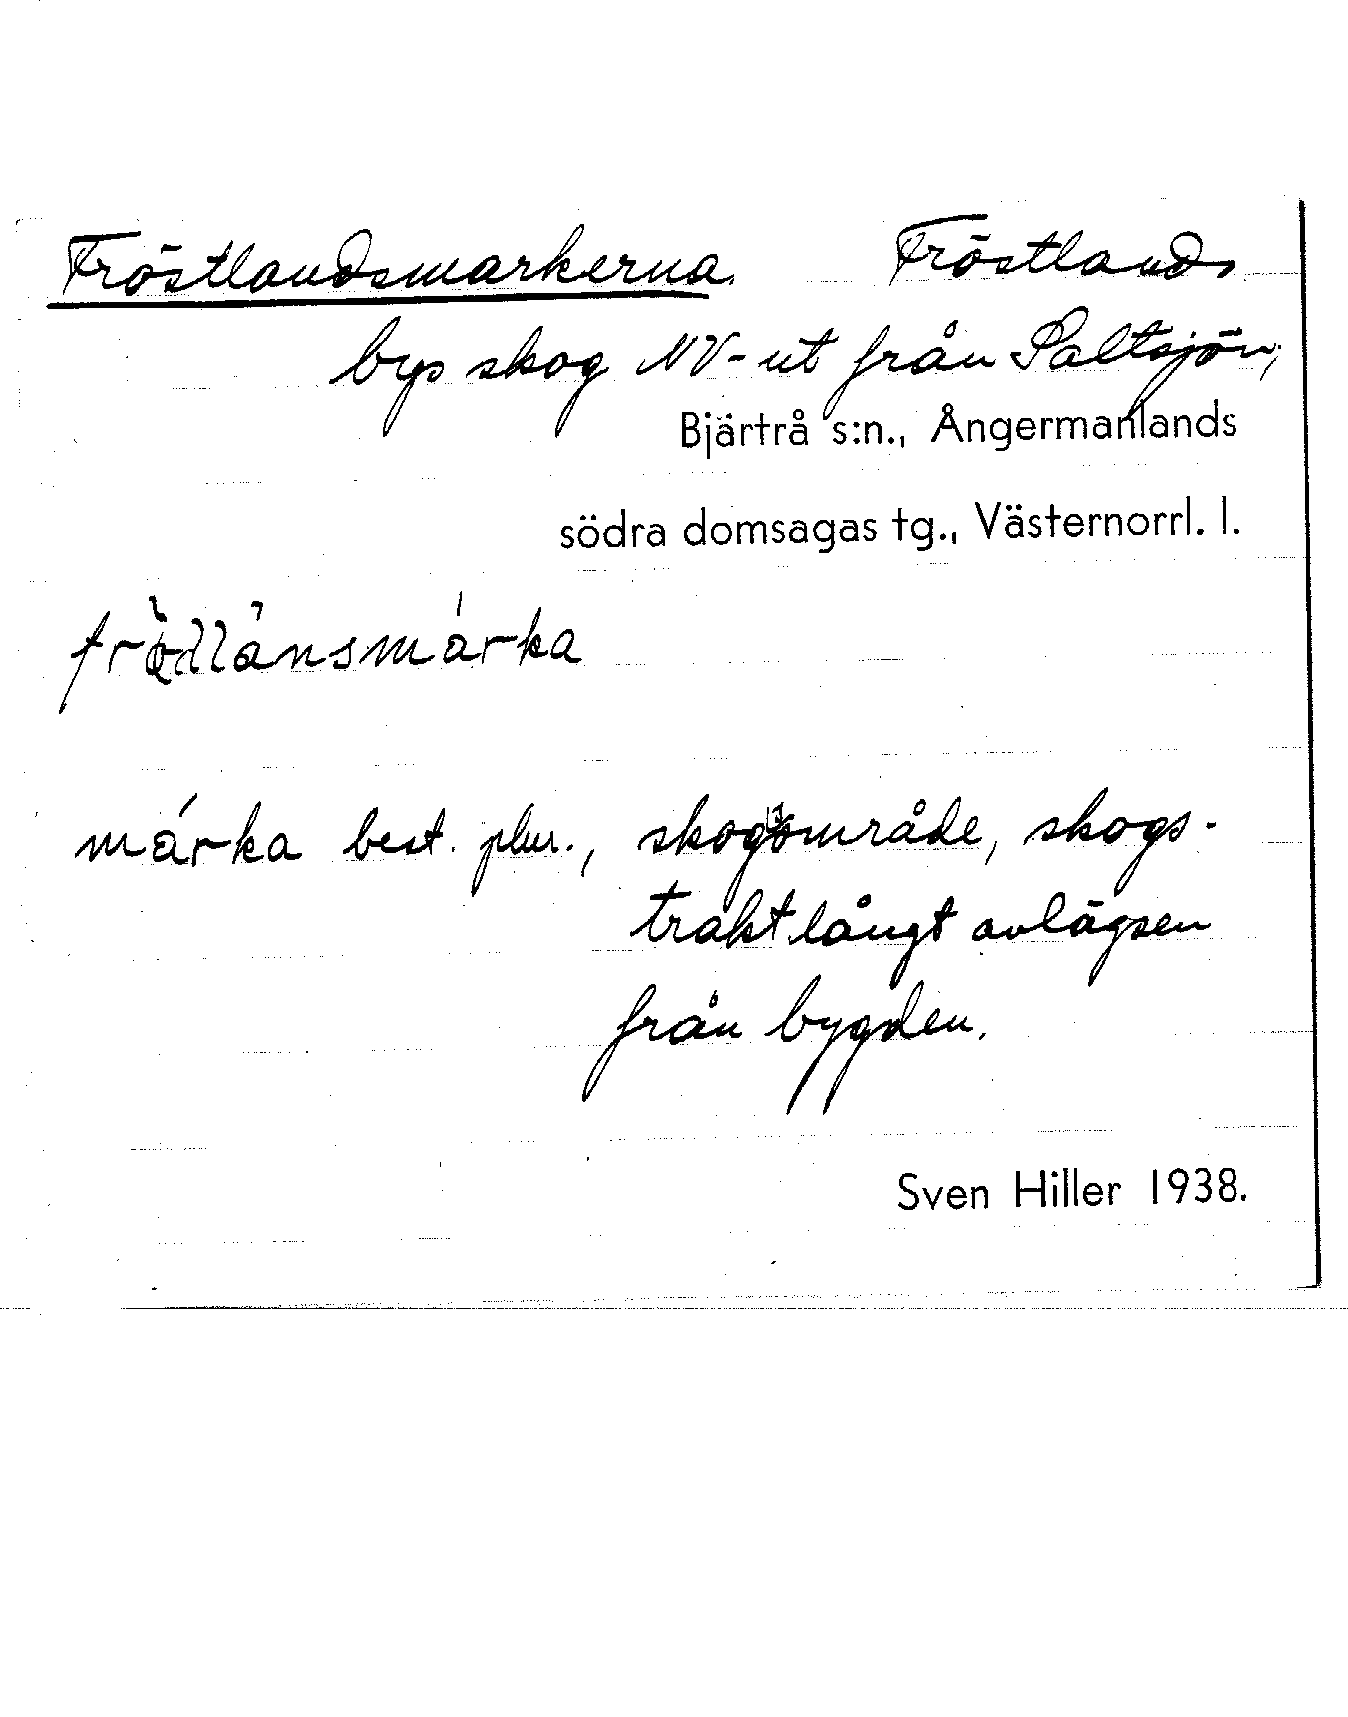 Fröstlandsmarkerna. Fröstlands
bys skog NV-ut från Saltsjön,
Bjärtrå s:n., Ångermanlands
södra domsagas tg., Västernorrl. l.
márka best. plur., skogsområde, skogs-
trakt långt avlägsen
från bygden.
Sven Hiller 1938.